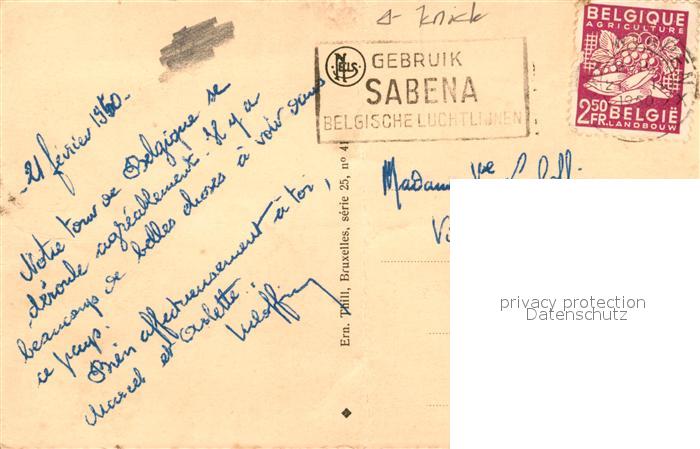 - Knick
GEBRUIK
SABENA
BELGISCHE LUCHTLIJNEN
NELS
BELGIQUE
AGRICULTURE
2.50
FR.
BELGIË
LANDBOUW
- 21 février 1950 -
Notre tour de Belgique se
déroule agréablement. Il y a
beaucoup de belles choses à voir dans
ce pays.
Bien affectueusement à toi,
Marcel et Arlette.
Ern. Thill, Bruxelles, série 25, n° 4
Madame
privacy protection
Datenschutz